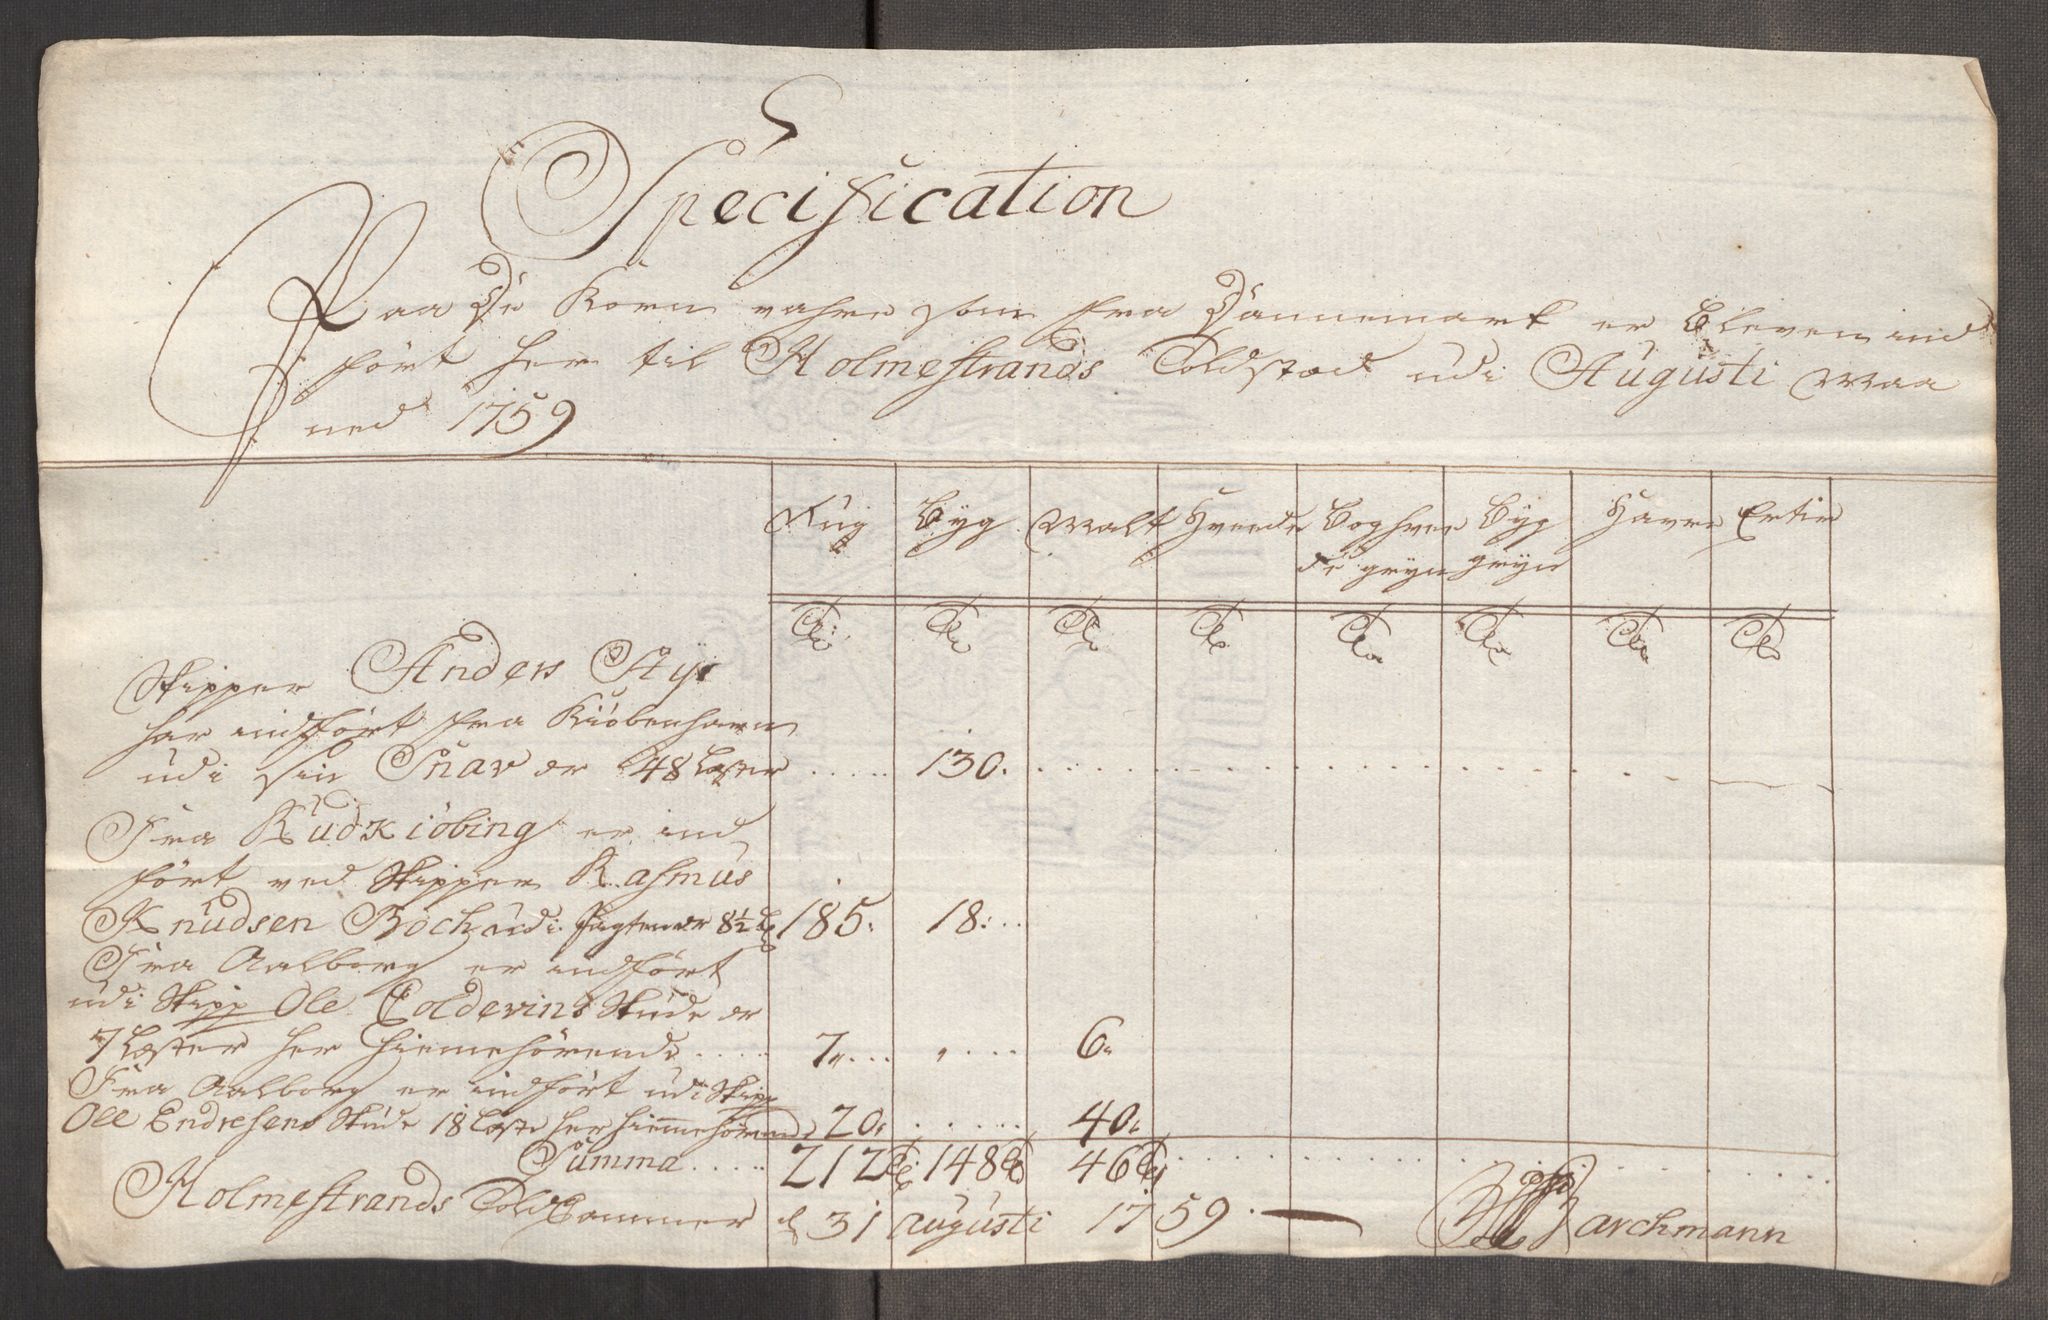 Specification
Paa De Korn vahre som fra Dannemark er bleven ind
ført her til Holmestrands Toldsted udi Augusti Maa
ned 1759
Rug Byg Malt Hvede Boghve Byg Havre Erter
de gryn gryn
Tr Tr Tr Tr Tr Tr Tr Tr
Skipper Anders
har indført fra Kiöbenhavn
udi sin Snav dr 48 Læster ..... 130. .....
Fra Rudkiöbing er ind
ført ved Skipper Rasmus
Knudsen Boch udi Jagten dr 8½ L 185. 18: ..
Fra Aalborg er indført
udi Skipp Ole Coldevins Skude dr
7 Læster her hiemmehörende ..... 7„ ... „ .... 6„
Fra Aalborg er indført udi Skipp
Ole Endresens Skude 18 Læster her hiemmehörend 20„ ...... 40„
Summa ..... 212 Tr 148 Tr 46 Tr .....
Holmestrands Told Cammer d 31 Augusti 1759. — Barchmann